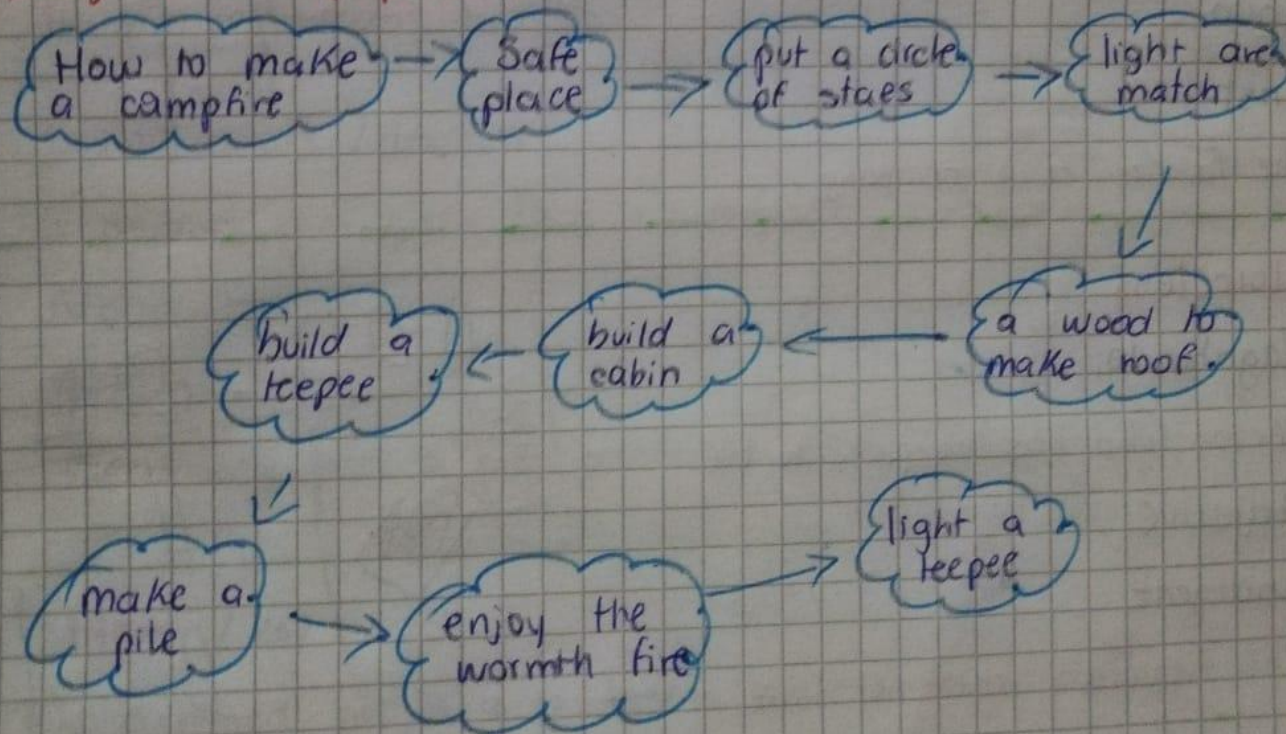 How to make
a campfire
Safe
place
put a circle
of staes
light are
match
a wood to
make roof.
build a
cabin
build a
teepee
make a
pile
enjoy the
wormth fire
light a
teepee